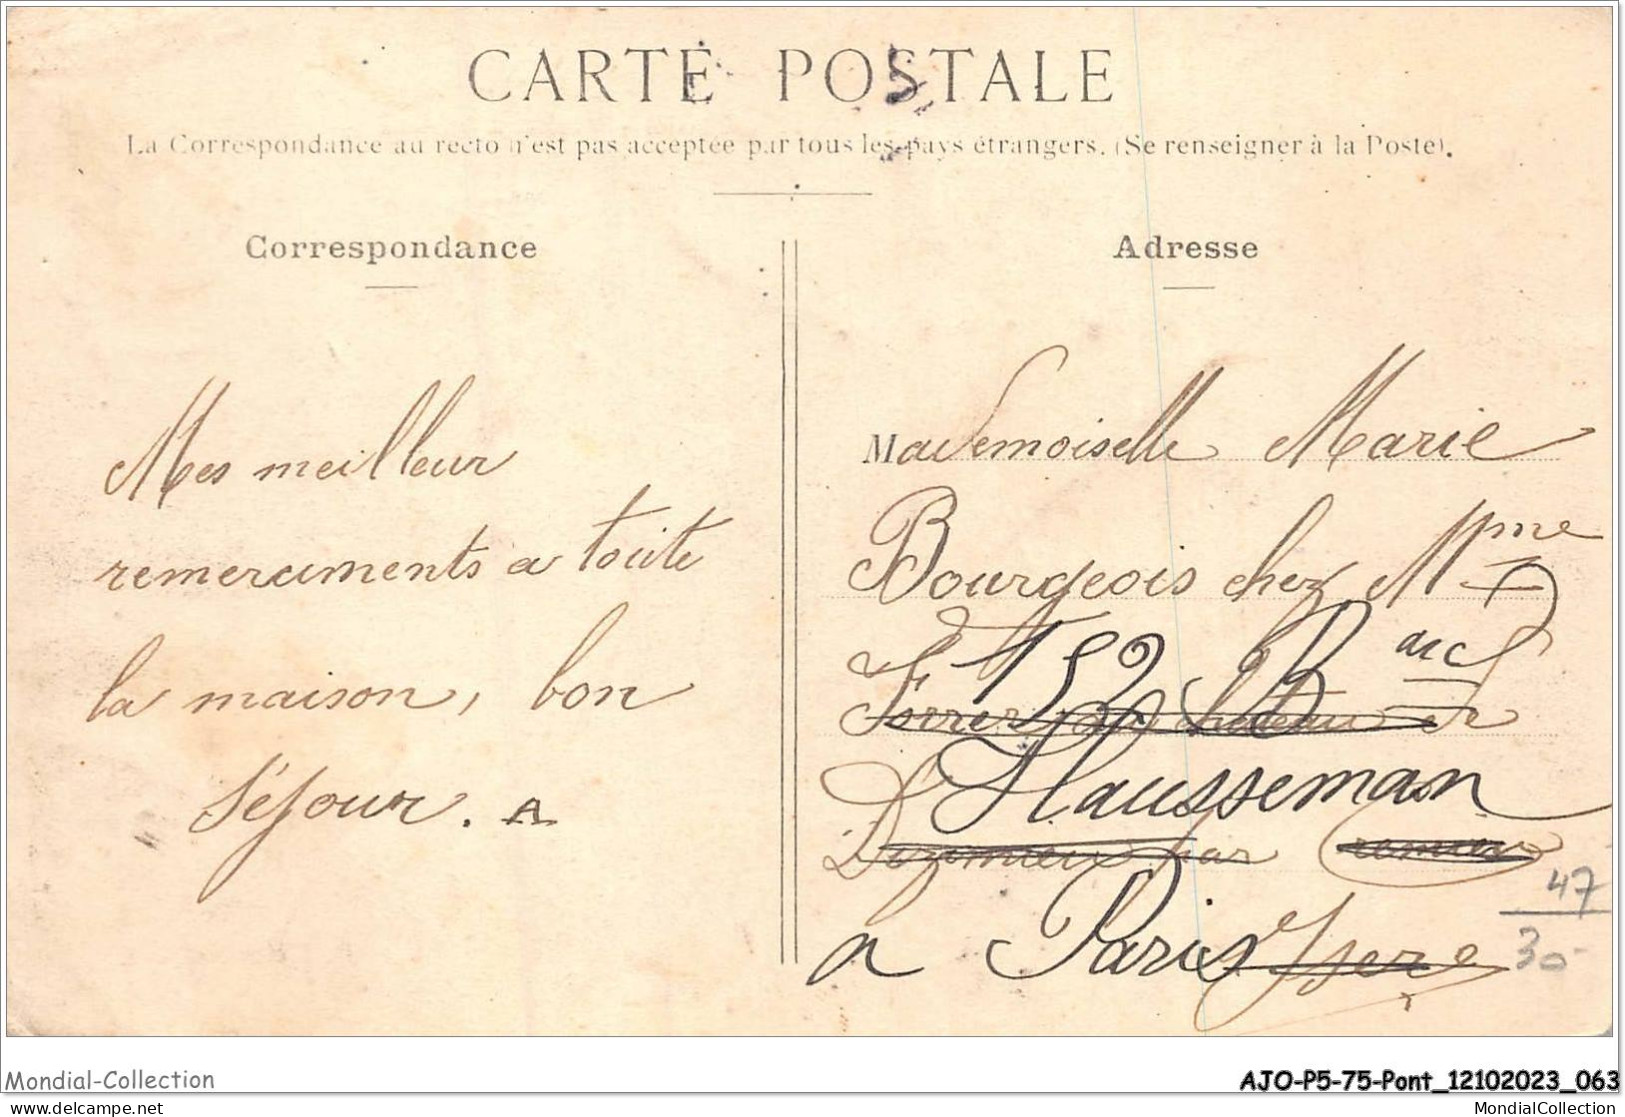 CARTE POSTALE
La Correspondance au recto n'est pas acceptée par tous les pays étrangers. (Se renseigner à la Poste).
Correspondance
Mes meilleur
remerciments a toute
la maison, bon
Séjour. A
Adresse
Mademoiselle Marie
Bourgeois chez Mme
Ferrer au chateau de
152 Bard
Dizimieu par Cremieu
Hausseman
a Paris Isere
47
30
Mondial-Collection
AJO-P5-75-Pont_12102023_063
delcampe.net
MondialCollection